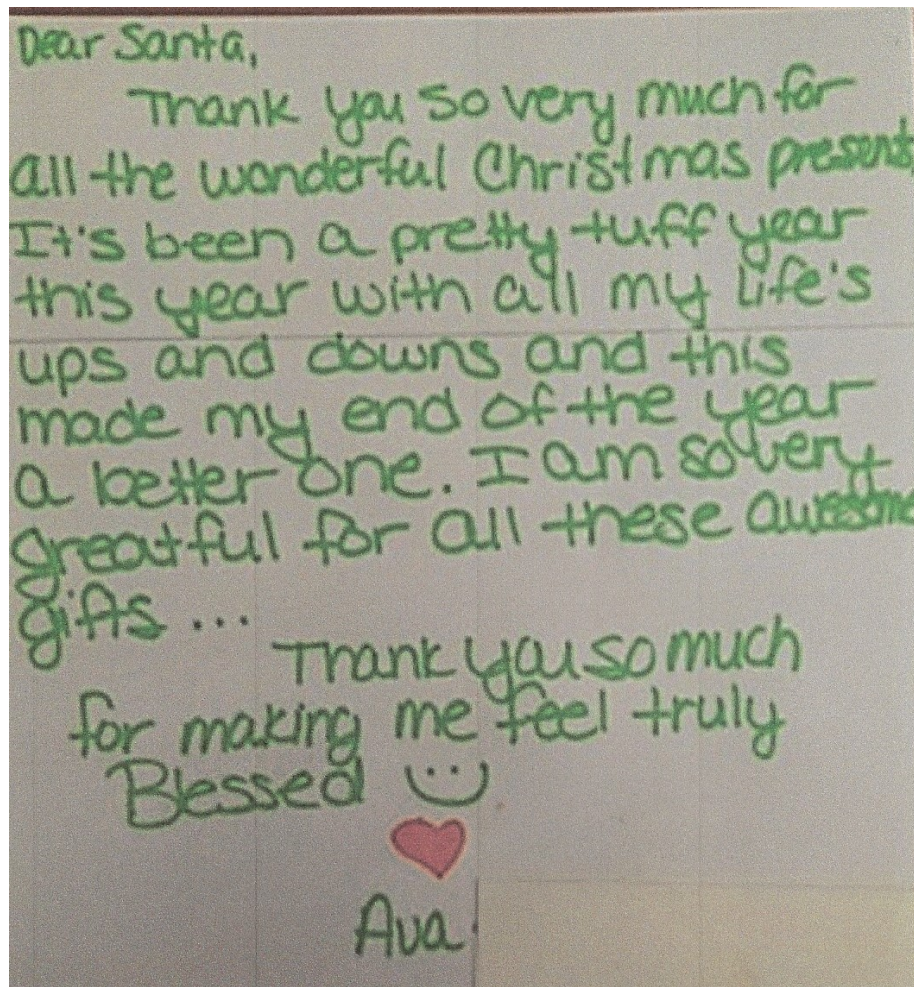 Dear Santa,
Thank you so very much for
all the wonderful Christmas presents
It's been a pretty tuff year
this year with all my life's
ups and downs and this
made my end of the year
a better one. I am so very
greatful for all these awesome
gifts ...
Thank you so much
for making me feel truly
Blessed
Ava